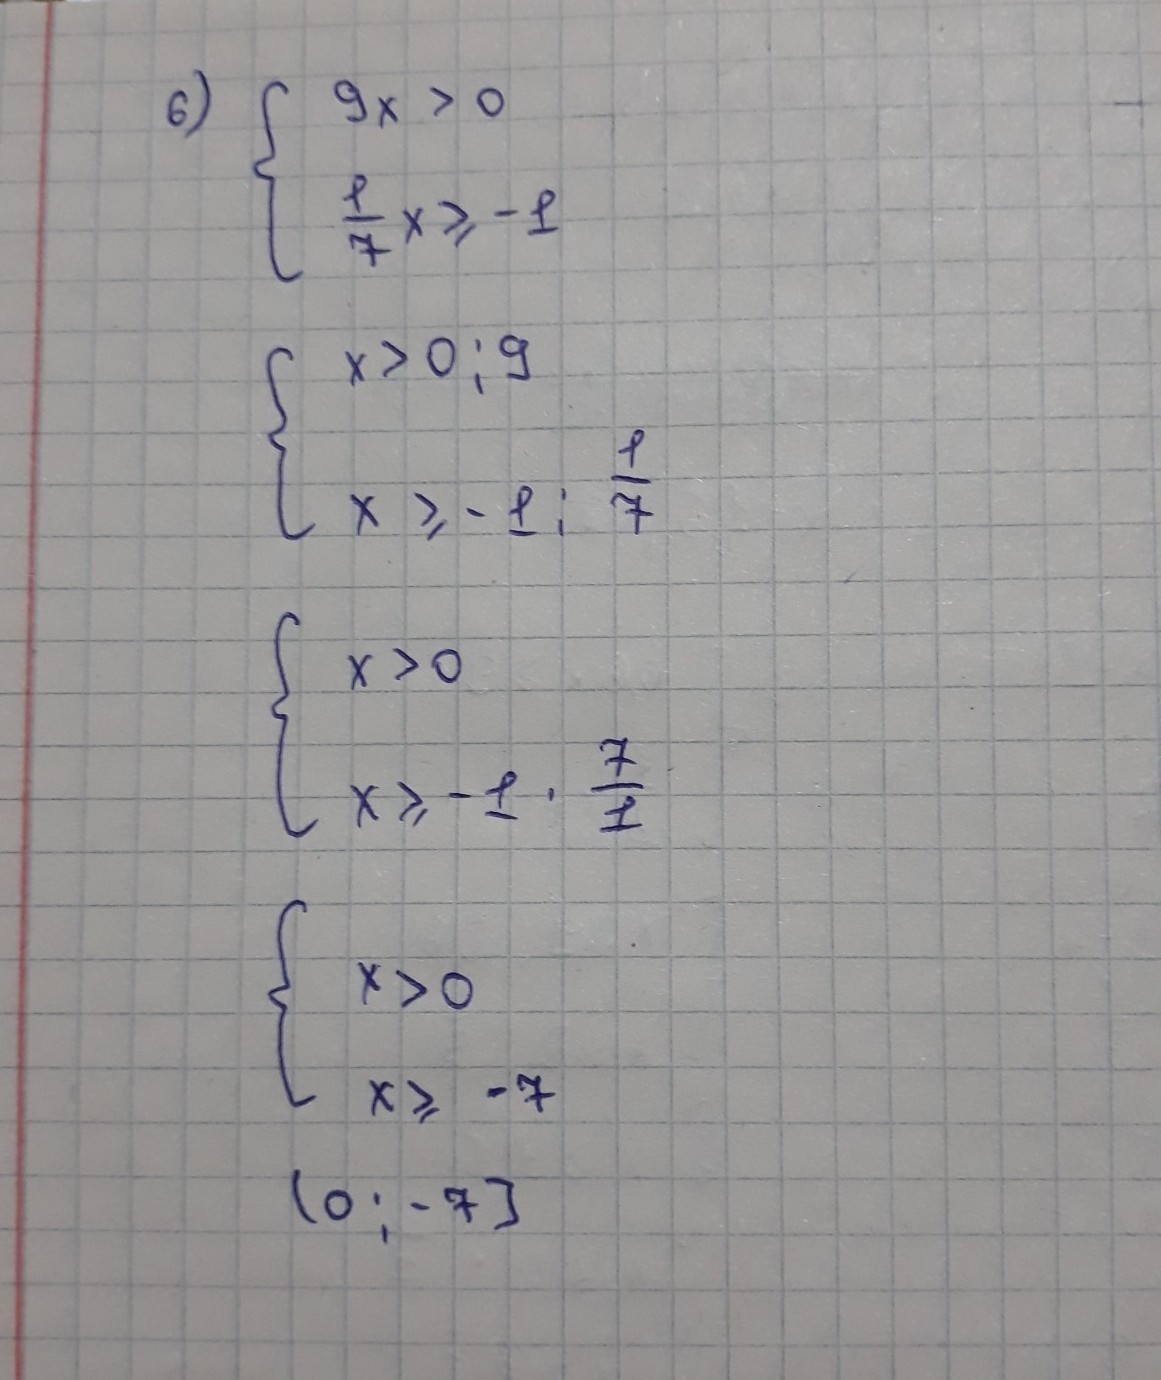 6) { 9x > 0
1/7 x ⩾ -1
{ x > 0 ; 9
x ⩾ -1 : 1/7
{ x > 0
x ⩾ -1 · 7/1
{ x > 0
x ⩾ -7
(0 ; -7]